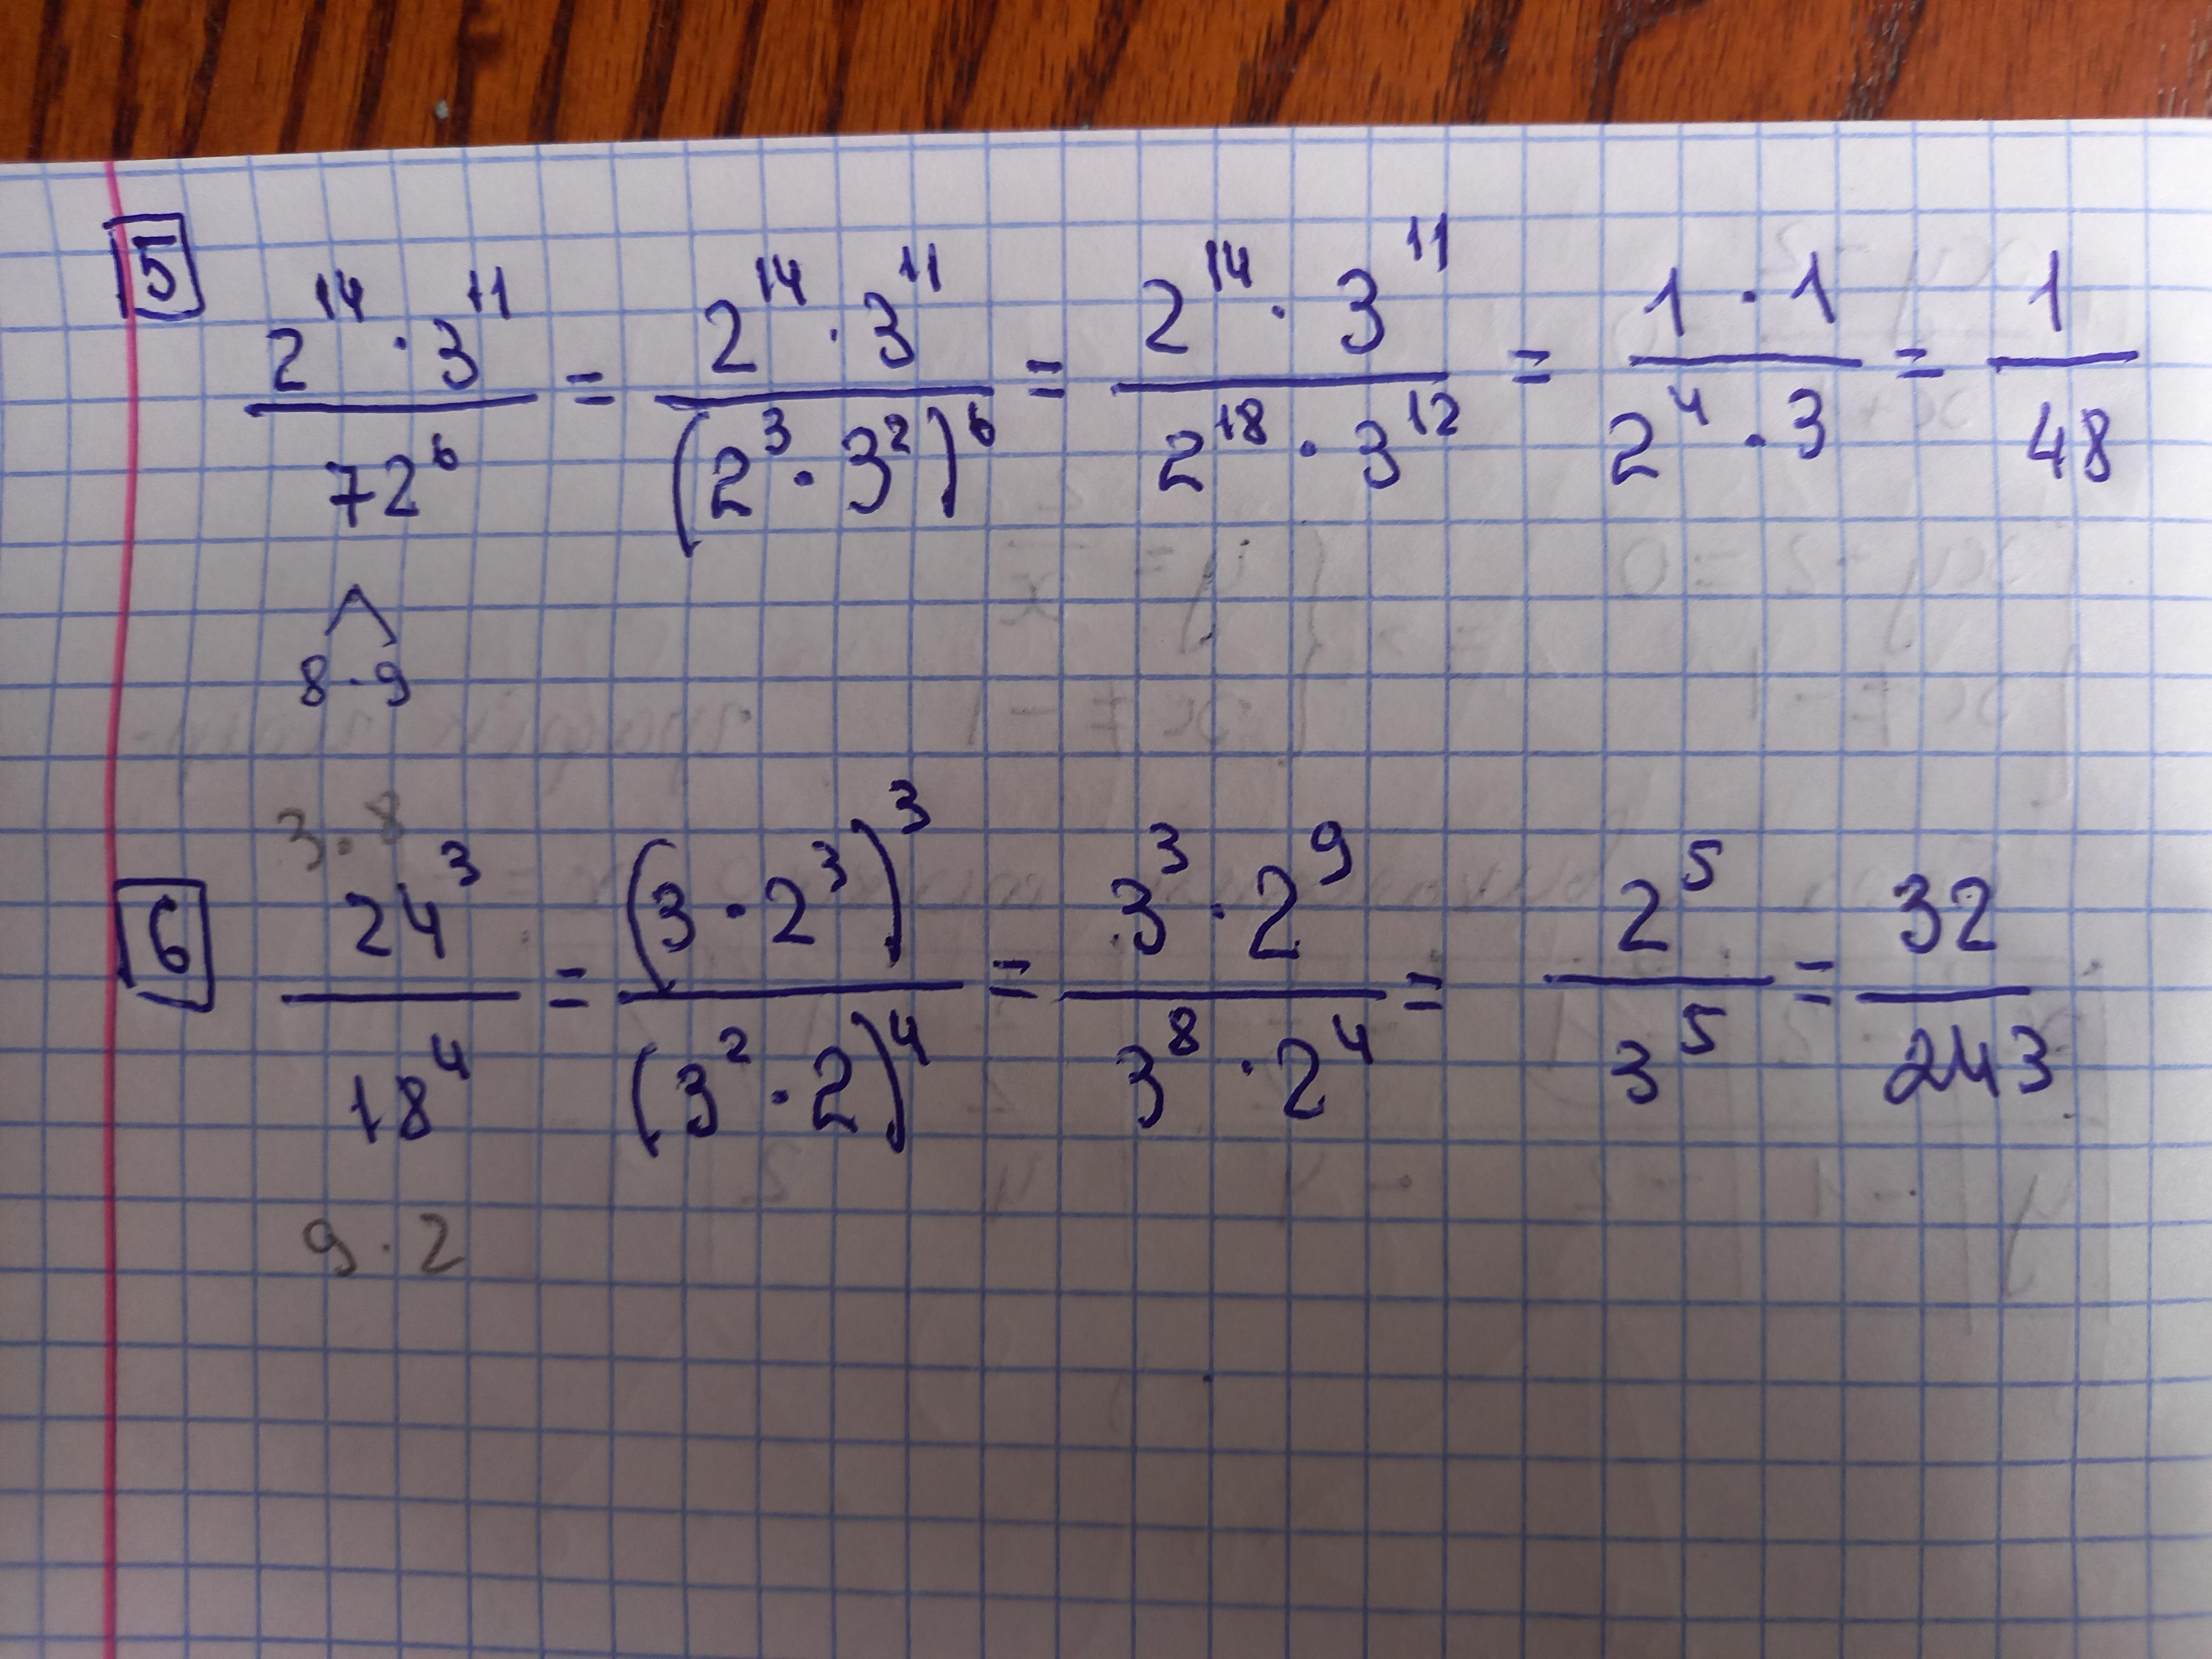 5
2^14 · 3^11 / 72^6 = 2^14 · 3^11 / (2^3 · 3^2)^6 = 2^14 · 3^11 / 2^18 · 3^12 = 1 · 1 / 2^4 · 3 = 1 / 48
8 · 9
3 · 8
6
24^3 / 18^4 = (3 · 2^3)^3 / (3^2 · 2)^4 = 3^3 · 2^9 / 3^8 · 2^4 = 2^5 / 3^5 = 32 / 243
9 · 2